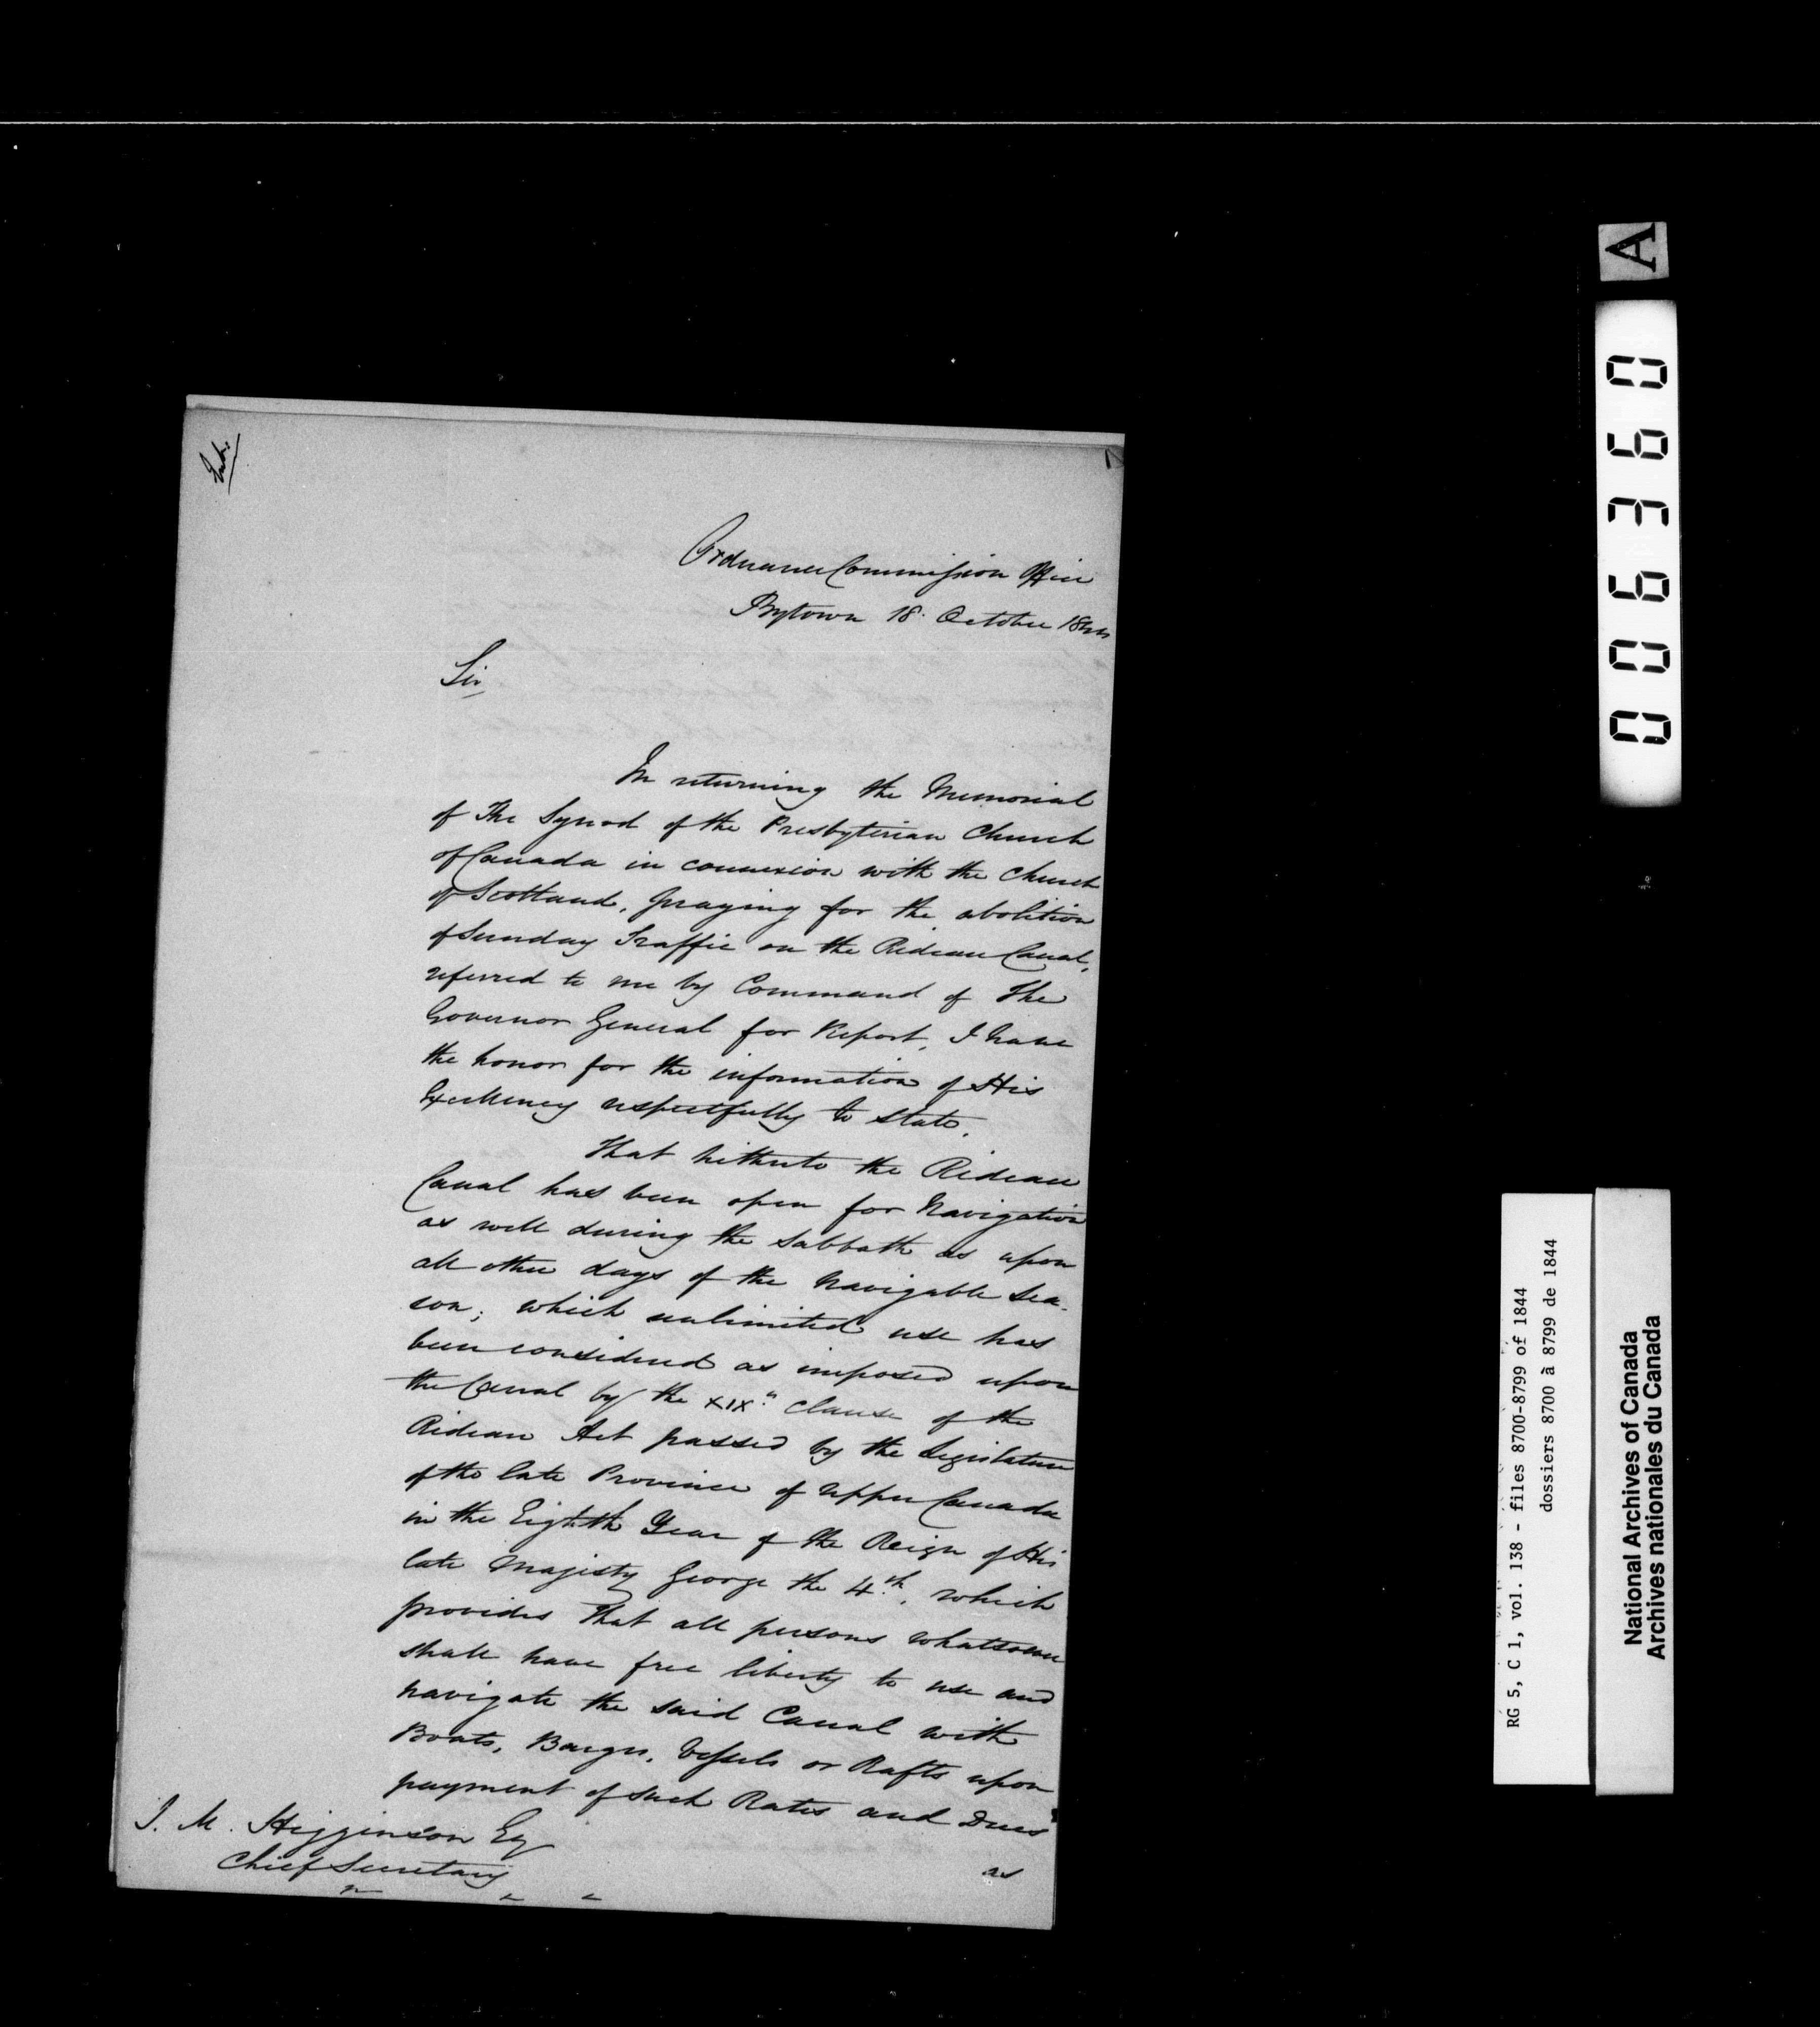 Ordnance Commission Office
Bytown 18. October 1844
Sir
In returning the Memorial
of The Synod of the Presbyterian Church
of Canada in connexion with the Church
of Scotland, praying for the abolition
of Sunday Traffic on the Rideau Canal,
referred to me by Command of The
Governor General for Report, I have
the honor for the information of His
Excellency respectfully to state,
That hitherto the Rideau
Canal has been open for Navigation
as well during the Sabbath as upon
all other days of the Navigable Sea-
son; which unlimited use has
been considered as imposed upon
the Canal by the XIXth Clause of the
Rideau Act passed by the Legislature
of the late Province of Upper Canada
in the Eighth Year of the Reign of His
late Majesty George the 4th, which
provides That all persons whatsoever
shall have free liberty to use and
navigate the said Canal with
Boats, Barges, Vessels or Rafts upon
payment of such Rates and Dues
as
J. M. Higginson Esq
Chief Secretary
A
006360
RG 5, C 1, vol. 138 - files 8700-8799 of 1844
dossiers 8700 à 8799 de 1844
National Archives of Canada
Archives nationales du Canada